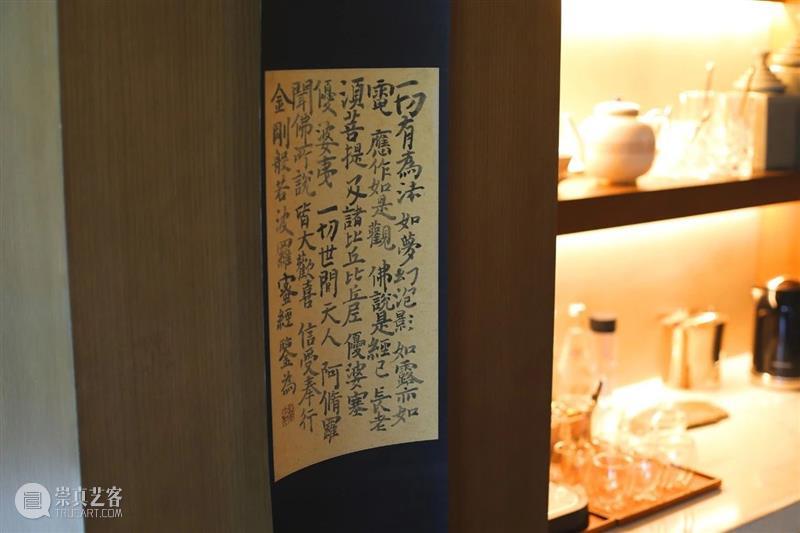 一切有為法 如夢幻泡影 如露亦如
電 應作如是觀 佛說是經已 長老
須菩提 及諸比丘比丘尼 優婆塞
優婆夷 一切世間天人 阿脩羅
聞佛所說 皆大歡喜 信受奉行
金剛般若波羅蜜經
崇真艺客
TRUEART.COM